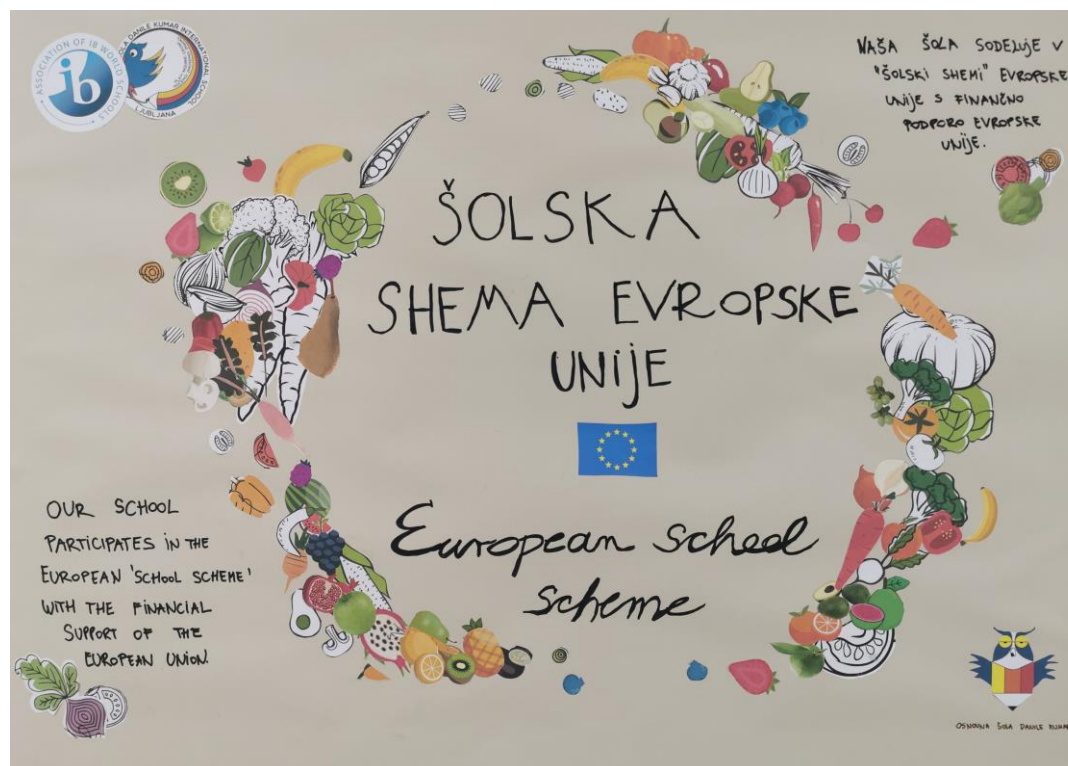 ASSOCIATION OF IB WORLD SCHOOLS
ib
OLA DANILE KUMAR INTERNATIONAL SCHOOL
LJUBLJANA
NAŠA ŠOLA SODELUJE V
"ŠOLSKI SHEMI" EVROPSKE
UNIJE S FINANČNO
PODPORO EVROPSKE
UNIJE.
ŠOLSKA
SHEMA EVROPSKE
UNIJE
European school
scheme
OUR SCHOOL
PARTICIPATES IN THE
EUROPEAN 'SCHOOL SCHEME'
WITH THE FINANCIAL
SUPPORT OF THE
EUROPEAN UNION.
OSNOVNA ŠOLA DANILE KUMAR